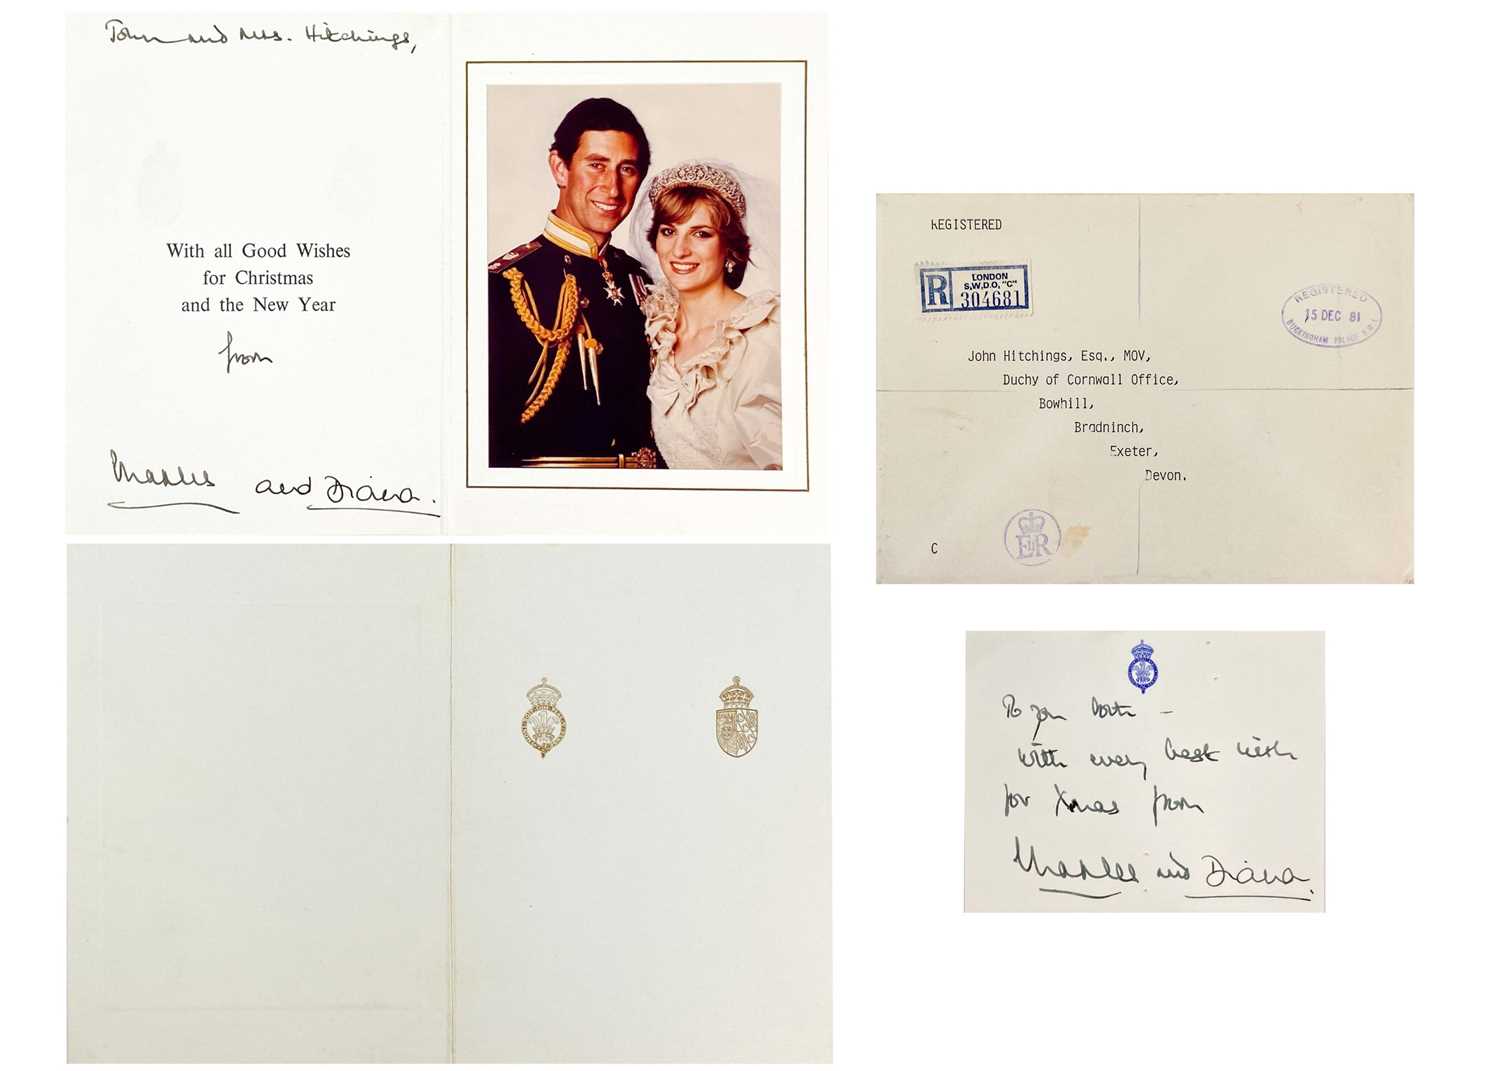 John and Mrs. Hitchings,
With all Good Wishes
for Christmas
and the New Year
from
Charles and Diana.
REGISTERED
R
LONDON
S.W.D.O. "C"
304681
REGISTERED
15 DEC 81
BUCKINGHAM PALACE
John Hitchings, Esq., MOV,
Duchy of Cornwall Office,
Bowhill,
Bradninch,
Exeter,
Devon.
C
EIIR
To you both –
with every best wish
for Xmas from
Charles and Diana.